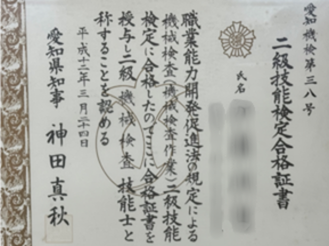 愛知機検第三八号
二級技能検定合格証書
氏名
職業能力開発促進法の規定による
機械検査(機械検査作業)二級技能
検定に合格したのでここに合格証書を
授与し二級 機械検査 技能士と
称することを認める
平成十二年三月二十四日
愛知県知事 神田真秋